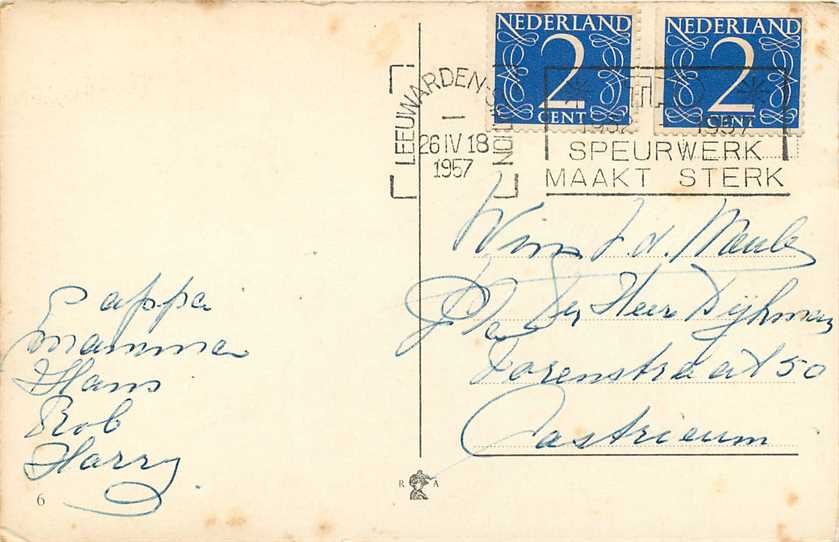 NEDERLAND
2
CENT
NEDERLAND
2
CENT
LEEUWARDEN-STATION
26 IV 18
1957
TNO
1932 1957
SPEURWERK
MAAKT STERK
Wim v. d.
Den Heer
Torenstraat 50
Castricum
Pappa
Mamma
Hans
Rob
Harry
R A
6